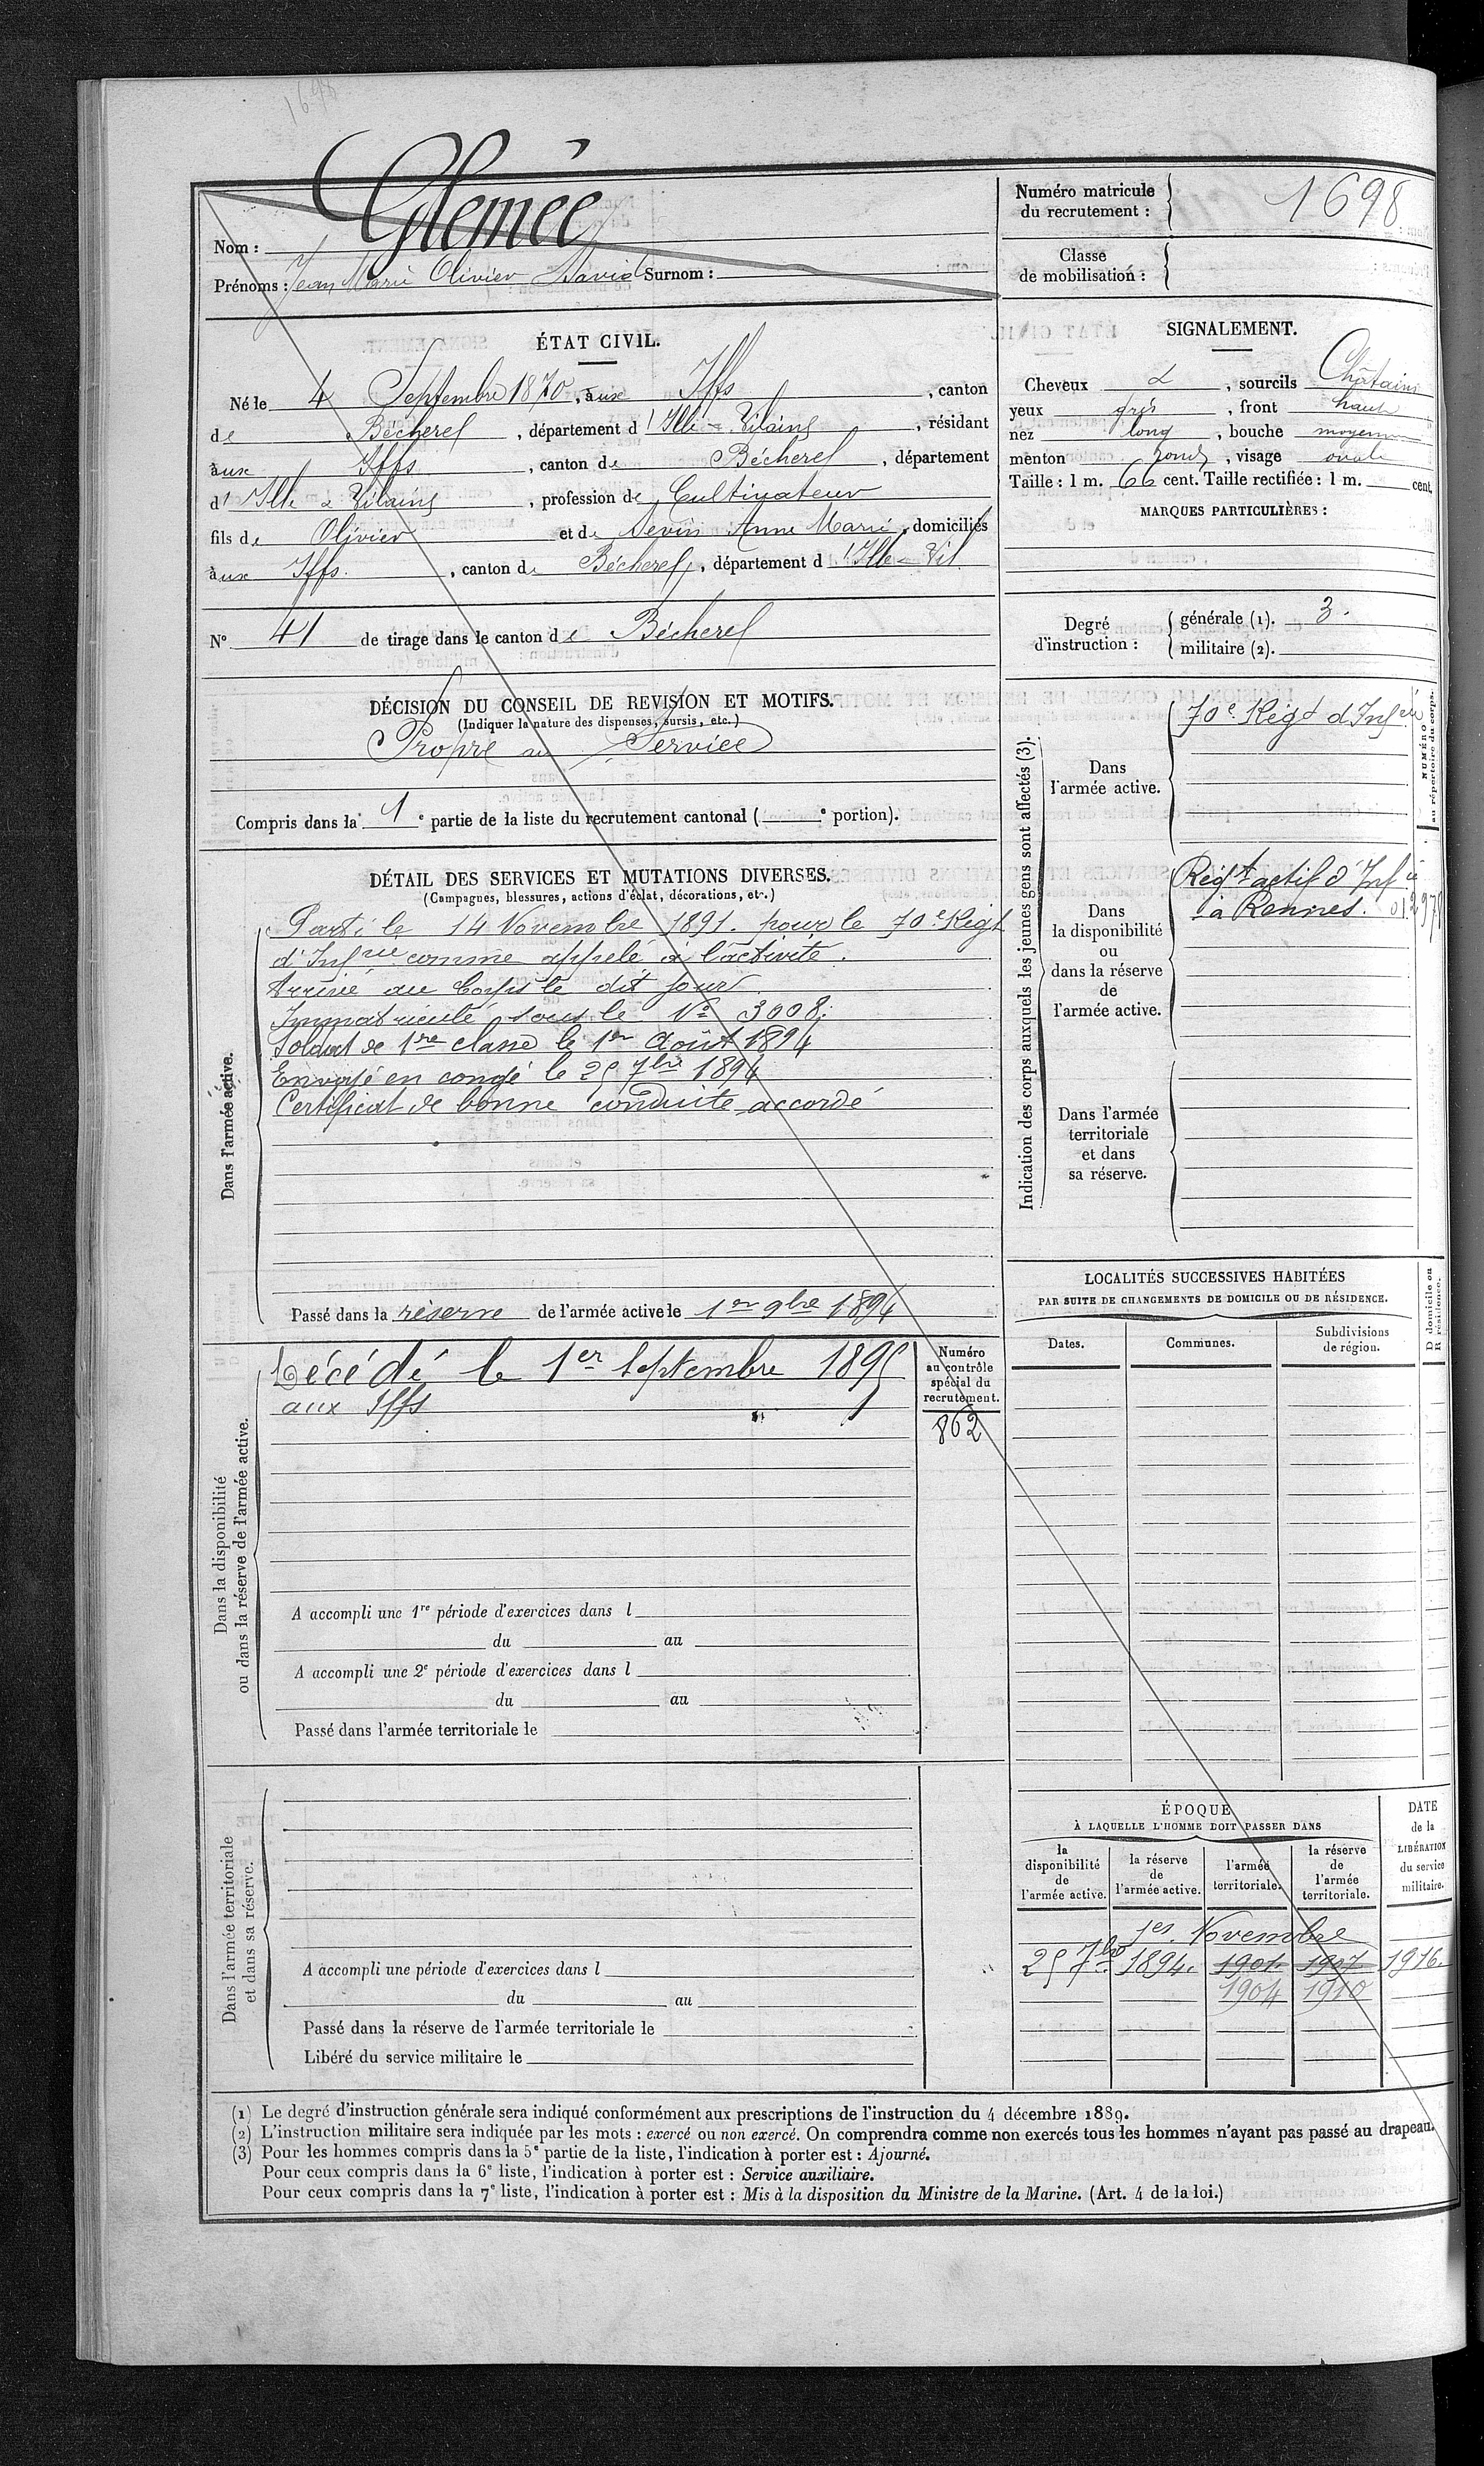 1698
Nom : Glémée
Prénoms : Jean Marie Olivier David Surnom :
Numéro matricule du recrutement : 1698
Classe de mobilisation :
ÉTAT CIVIL.
Né le 4 Septembre 1870, aux Iffs, canton
de Bécherel, département d'Ille-Vilaine, résidant
aux Iffs, canton de Bécherel, département
d'Ille & Vilaine, profession de Cultivateur
fils de Olivier et de Anne Marie, domiciliés
aux Iffs, canton de Bécherel, département d'Ille-Vil
N° 41 de tirage dans le canton de Bécherel
SIGNALEMENT.
Cheveux &, sourcils Châtains
yeux gris, front haut
nez long, bouche moyenne
menton rond, visage ovale
Taille : 1 m. 66 cent. Taille rectifiée : 1 m. cent.
MARQUES PARTICULIÈRES :
Degré d'instruction : générale (1). 3.
militaire (2).
DÉCISION DU CONSEIL DE REVISION ET MOTIFS.
(Indiquer la nature des dispenses, sursis, etc.)
Propre au Service
Compris dans la 1e partie de la liste du recrutement cantonal ( e portion).
DÉTAIL DES SERVICES ET MUTATIONS DIVERSES.
(Campagnes, blessures, actions d'éclat, décorations, etc.)
Dans l'armée active.
Parti le 14 Novembre 1891. pour le 70e Régt
d'Infrie comme appelé à l'activité.
Arrivé au Corps le dit jour.
Immatriculé sous le N° 3008.
Soldat de 1re classe le 1er Août 1894
Envoyé en congé le 25 7bre 1894
Certificat de bonne conduite accordé
Passé dans la réserve de l'armée active le 1er 9bre 1894
Indication des corps auxquels les jeunes gens sont affectés (3).
NUMÉRO au répertoire du corps.
Dans l'armée active.
70e Régt d'Infrie
Dans la disponibilité ou dans la réserve de l'armée active.
Régt actif d'Infie
à Rennes.
Dans l'armée territoriale et dans sa réserve.
Dans la disponibilité ou dans la réserve de l'armée active.
Décédé le 1er Septembre 1895
aux Iffs
Numéro au contrôle spécial du recrutement.
862
A accompli une 1re période d'exercices dans l
du au
A accompli une 2e période d'exercices dans l
du au
Passé dans l'armée territoriale le
LOCALITÉS SUCCESSIVES HABITÉES
PAR SUITE DE CHANGEMENTS DE DOMICILE OU DE RÉSIDENCE.
Dates. Communes. Subdivisions de région.
D domicile ou R résidence.
Dans l'armée territoriale et dans sa réserve.
A accompli une période d'exercices dans l
du au
Passé dans la réserve de l'armée territoriale le
Libéré du service militaire le
ÉPOQUE
À LAQUELLE L'HOMME DOIT PASSER DANS
la disponibilité de l'armée active.
la réserve de l'armée active.
l'armée territoriale.
la réserve de l'armée territoriale.
DATE de la LIBÉRATION du service militaire.
1er Novembre
25 7bre 1894. 1901 1907 1916.
1904 1910
(1) Le degré d'instruction générale sera indiqué conformément aux prescriptions de l'instruction du 4 décembre 1889.
(2) L'instruction militaire sera indiquée par les mots : exercé ou non exercé. On comprendra comme non exercés tous les hommes n'ayant pas passé au drapeau.
(3) Pour les hommes compris dans la 5e partie de la liste, l'indication à porter est : Ajourné.
Pour ceux compris dans la 6e liste, l'indication à porter est : Service auxiliaire.
Pour ceux compris dans la 7e liste, l'indication à porter est : Mis à la disposition du Ministre de la Marine. (Art. 4 de la loi.)